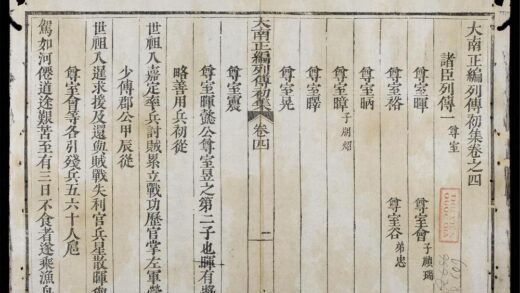 大南正編列傳初集卷之四
諸臣列傳一 尊室
尊室暉 尊室會 子
尊室裕 尊室谷 弟忠
尊室昞
尊室暲 子
尊室曎
尊室晃
大南正編列傳初集 卷四 一
尊室震
尊室暉懿公尊室昱之第二子也暉有將
略善用兵初從
世祖入嘉定率兵討賊累立戰功歷官掌左軍營
少傅郡公甲辰從
世祖入暹求援及還與賊戰失利官兵星散暉與
尊室會等各引殘兵五六十人扈
駕如河僊道途艱苦至有三日不食者遂乘漁舟